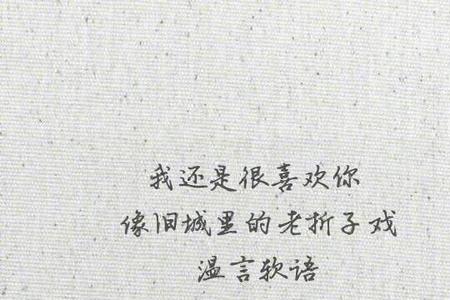 我还是很喜欢你
像旧城里的老折子戏
温言软语